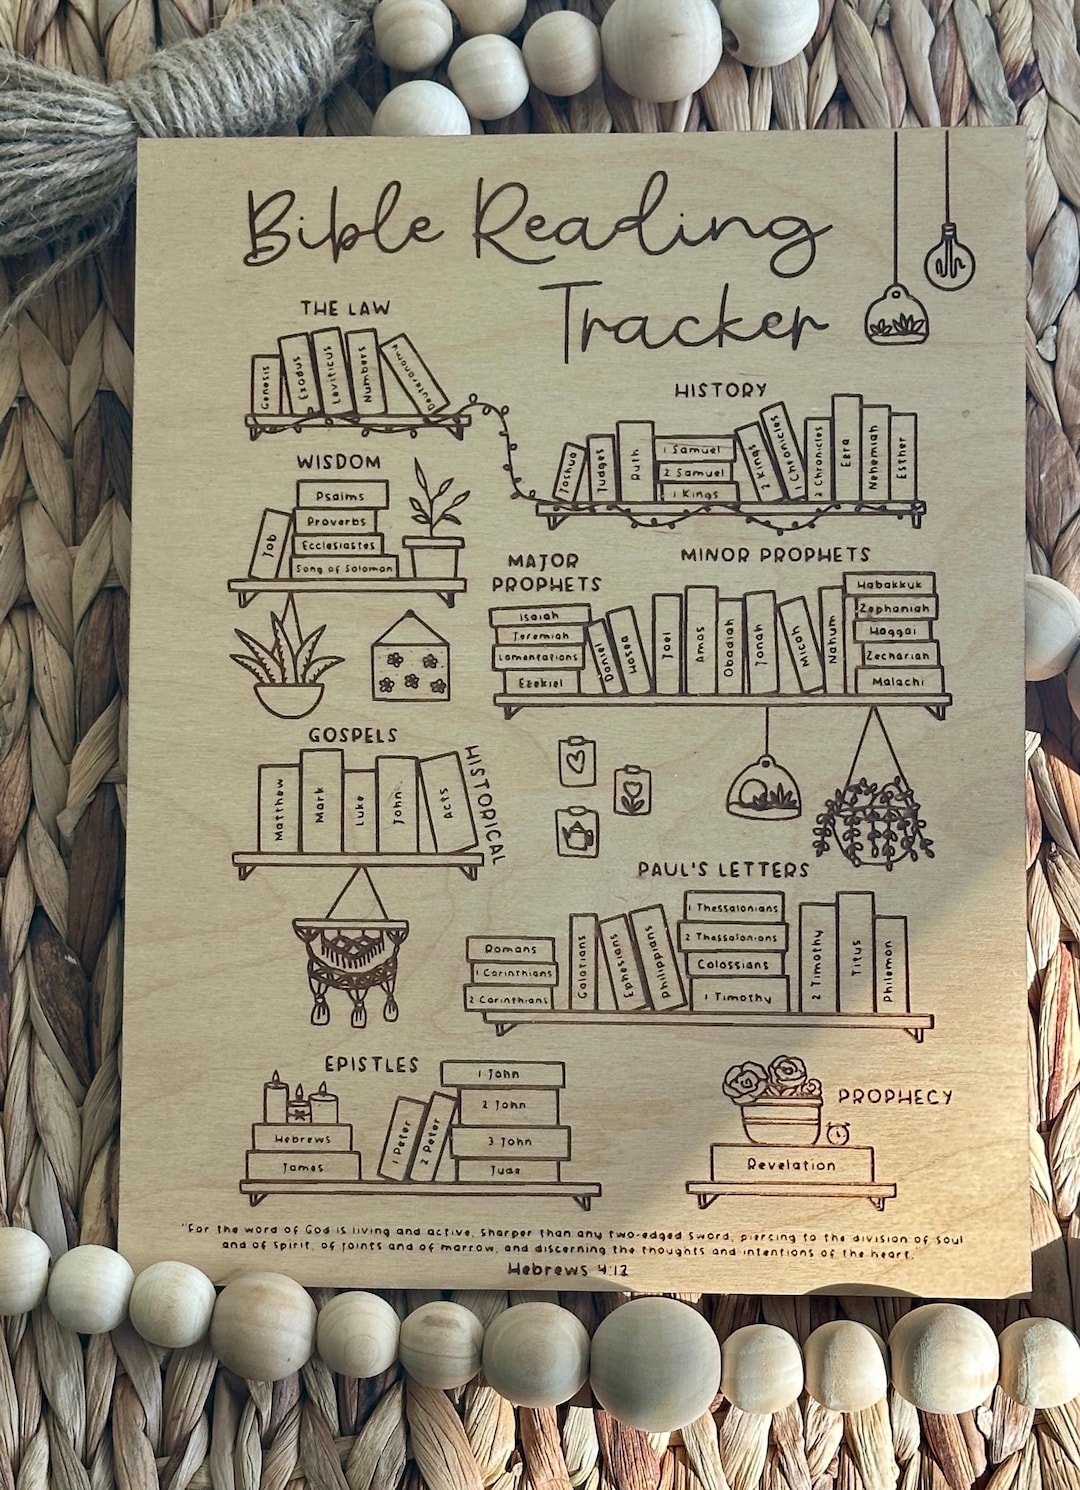 Bible Reading
Tracker
THE LAW
Genesis
Exodus
Leviticus
Numbers
Deuteronomy
HISTORY
Joshua
Judges
Ruth
1 Samuel
2 Samuel
1 Kings
2 Kings
1 Chronicles
2 Chronicles
Ezra
Nehemiah
Esther
WISDOM
Job
Psalms
Proverbs
Ecclesiastes
Song of Solomon
MAJOR
PROPHETS
Isaiah
Jeremiah
Lamentations
Ezekiel
Daniel
MINOR PROPHETS
Hosea
Joel
Amos
Obadiah
Jonah
Micah
Nahum
Habakkuk
Zephaniah
Haggai
Zechariah
Malachi
GOSPELS
Matthew
Mark
Luke
John
HISTORICAL
Acts
PAUL'S LETTERS
Romans
1 Corinthians
2 Corinthians
Galatians
Ephesians
Philippians
1 Thessalonians
2 Thessalonians
Colossians
1 Timothy
2 Timothy
Titus
Philemon
EPISTLES
Hebrews
James
1 Peter
2 Peter
1 John
2 John
3 John
Jude
PROPHECY
Revelation
"For the word of God is living and active, sharper than any two-edged sword, piercing to the division of soul
and of spirit, of joints and of marrow, and discerning the thoughts and intentions of the heart."
Hebrews 4:12